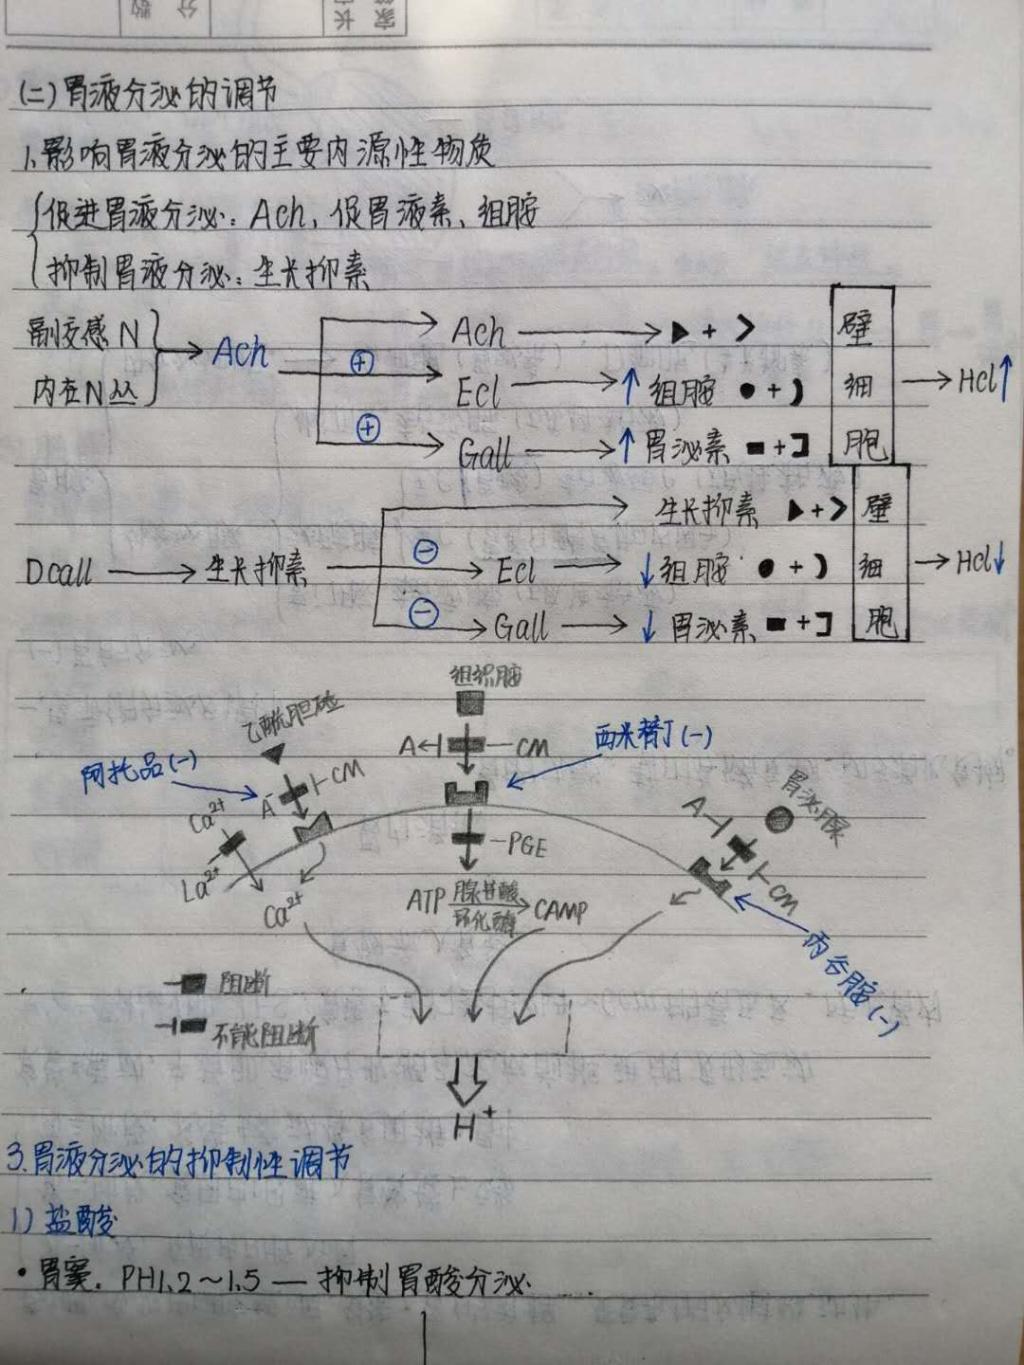 家 长
分 数
(二)胃液分泌的调节
1.影响胃液分泌的主要内源性物质
促进胃液分泌:Ach,促胃液素、组胺
抑制胃液分泌:生长抑素
副交感N
内在N丛
Ach
⊕
⊕
Ach
Ecl ↑组胺
Gall ↑胃泌素
壁细胞
Hcl↑
Dcall 生长抑素
⊖
⊖
生长抑素
Ecl ↓组胺
Gall ↓胃泌素
壁细胞
Hcl↓
组织胺
乙酰胆碱
A CM
西米替丁(-)
阿托品(-)
A CM
胃泌腺
A CM
Ca²⁺
La²⁺
Ca²⁺
PGE
ATP 腺苷酸环化酶 CAMP
丙谷胺(-)
阻断
不能阻断
H⁺
3.胃液分泌的抑制性调节
1)盐酸
·胃窦.PH1.2~1.5—抑制胃酸分泌......